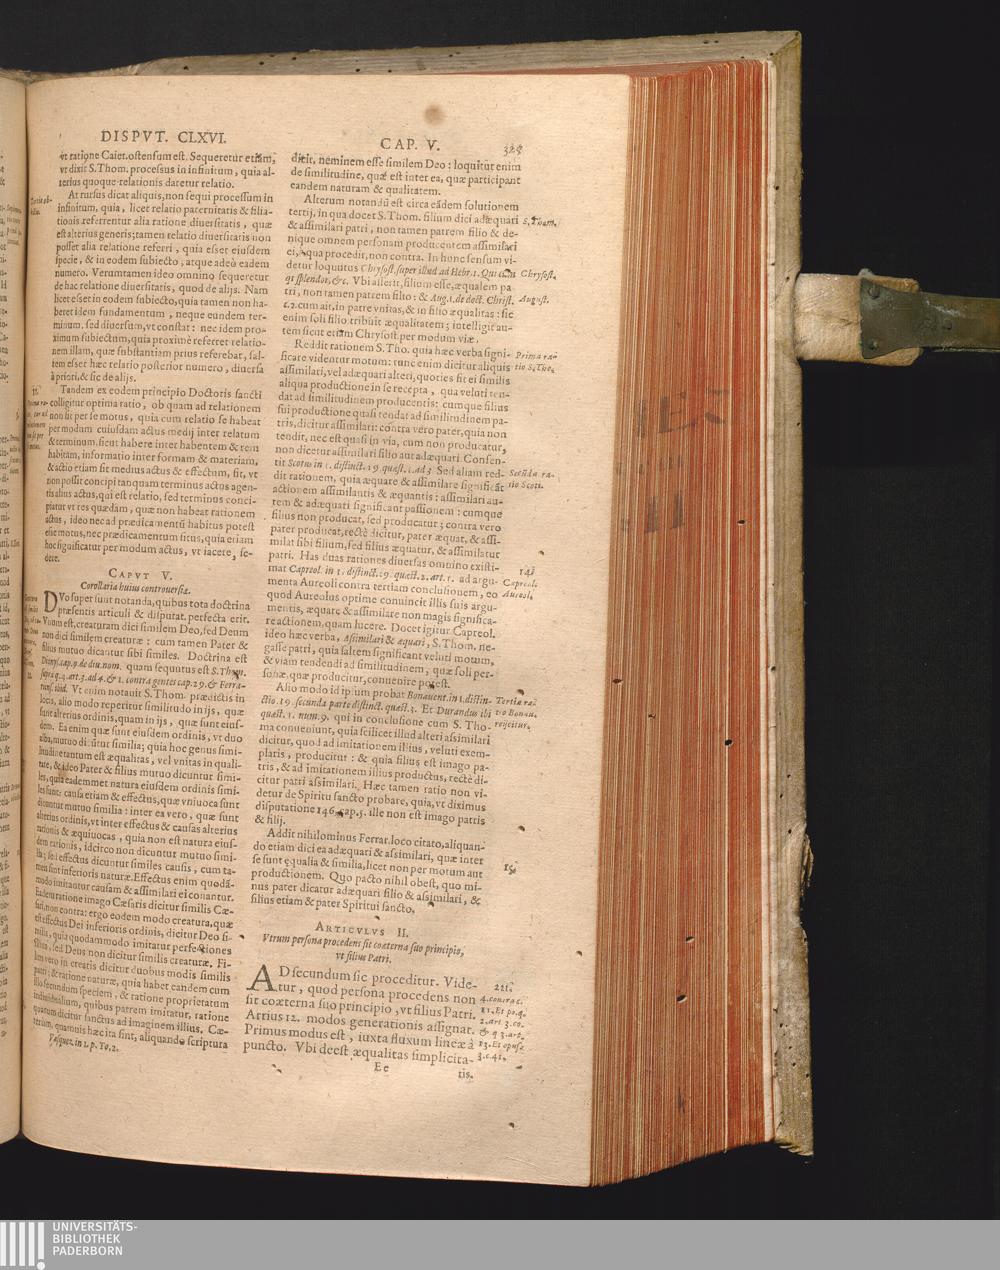 DISPVT. CLXVI.
CAP. V.
vt ratione Caiet. ostensum est. Sequeretur etiam,
vt dixit S. Thom. processus in infinitum, quia al-
terius quoque relationis daretur relatio.
At rursus dicat aliquis, non sequi processum in
infinitum, quia, licet relatio paternitatis & filia-
tionis referrentur alia ratione diuersitatis, quæ
est alterius generis; tamen relatio diuersitatis non
posset alia relatione referri, quia esset eiusdem
specie, & in eodem subiecto, atque adeò eadem
numero. Verumtamen ideo omnino sequeretur
de hac relatione diuersitatis, quod de alijs. Nam
licet esset in eodem subiecto, quia tamen non ha-
beret idem fundamentum, neque eundem ter-
minum, sed diuersum, vt constat: nec idem pro-
ximum subiectum, quia proximè referret relatio-
nem illam, quæ substantiam prius referebat, sal-
tem esset hæc relatio posterior numero, diuersa
à priori, & sic de alijs.
Tandem ex eodem principio Doctoris sancti
colligitur optima ratio, ob quam ad relationem
non sit per se motus, quia cum relatio se habeat
per modum cuiusdam actus medij inter relatum
& terminum, sicut habere inter habentem & rem
habitam, informatio inter formam & materiam,
& actio etiam sit medius actus & effectum, fit, vt
non possit concipi tanquam terminus actus agen-
tis alius actus, qui est relatio, sed terminus conci-
piatur vt res quædam, quæ non habeat rationem
actus, ideo nec ad prædicamentū habitus potest
esse motus, nec prædicamentum situs, quia etiam
hoc significatur per modum actus, vt iacere, se-
dere.
CAPVT V.
Corollaria huius controuersiæ.
DVo supersunt notanda, quibus tota doctrina
præsentis articuli & disputat. perfecta erit.
Vnum est, creaturam dici similem Deo, sed Deum
non dici similem creaturæ: cum tamen Pater &
filius mutuo dicantur sibi similes. Doctrina est
Dionys. cap. 9. de diu. nom. quam sequutus est S. Thom.
supra q. 4. art. 3. ad 4. & 1. contra gentes cap. 29. & Ferra-
riens. ibid. Vt enim notauit S. Thom. prædictis in
locis, alio modo reperitur similitudo in ijs, quæ
sunt alterius ordinis, quam in ijs, quæ sunt eius-
dem. Ea enim quæ sunt eiusdem ordinis, vt duo
alba, mutuo dicūtur similia; quia hoc genus simi-
litudine tantum est æqualitas, vel vnitas in quali-
tate, & ideo Pater & filius mutuo dicuntur simi-
les, quia eademmet natura eiusdem ordinis simi-
les sunt: causa etiam & effectus, quæ vniuoca sunt
dicuntur mutuo similia: inter ea vero, quæ sunt
alterius ordinis, vt inter effectus & causas alterius
rationis & æquiuocas, quia non est natura eius-
dem rationis, idcirco non dicuntur mutuo simi-
lia; sed effectus dicuntur similes causis, cum ta-
men sint inferioris naturæ. Effectus enim quodā-
modo imitantur causam & assimilari ei conantur.
Eadem ratione imago Cæsaris dicitur similis Cæ-
sari, non contra: ergo eodem modo creatura, quæ
est effectus Dei inferioris ordinis, dicitur Deo si-
milis, quia quodammodo imitatur perfectiones
illius, sed Deus non dicitur similis creaturæ. Fi-
lius vero in creatis dicitur duobus modis similis
patri: & ratione naturæ, quia habet eandem cum
illo secundum speciem, & ratione proprietatum
indiuidualium, quibus patrem imitatur, ratione
quarum dicitur sanctus ad imaginem illius. Cæ-
terum, quamuis hæc ita sint, aliquando scriptura
Vasquez. in 1. p. To. 2.
dicit, neminem esse similem Deo: loquitur enim
de similitudine, quæ est inter ea, quæ participant
eandem naturam & qualitatem.
Alterum notandū est circa eādem solutionem
tertij, in qua docet S. Thom. filium dici adæquari
& assimilari patri, non tamen patrem filio & de-
nique omnem personam producentem assimilari
ei, à qua procedit, non contra. In hunc sensum vi-
detur loquutus Chrysost. super illud ad Hebr. 1. Qui cum
sit splendor, &c. Vbi asserit, filium esse, æqualem pa-
tri, non tamen patrem filio: & Aug. 1. de doct. Christ.
c. 2. cum ait, in patre vnitas, & in filio æqualitas: sic
enim soli filio tribuit æqualitatem; intelligit au-
tem sicut etiam Chrysost. per modum viæ.
Reddit rationem S. Tho. quia hæc verba signi-
ficare videntur motum: tunc enim dicitur aliquis
assimilari, vel adæquari alteri, quoties fit ei similis
aliqua productione in se recepta, qua veluti ten-
dat ad similitudinem producentis: cumque filius
sui productione quasi tendat ad similitudinem pa-
tris, dicitur assimilari: contra vero pater, quia non
tendit, nec est quasi in via, cum non producatur,
non dicetur assimilari filio aut adæquari. Consen-
tit Scotus in 1. distinct. 19. quæst. 1. ad 3. Sed aliam red-
dit rationem, quia æquare & assimilare significāt
actionem assimilantis & æquantis: assimilari au-
tem & adæquari significant passionem: cumque
filius non producat, sed producatur; contra vero
pater producat, rectè dicitur, pater æquat, & assi-
milat sibi filium, sed filius æquatur, & assimilatur
patri. Has duas rationes diuersas omnino existi-
mat Capreol. in 1. distinct. 19. quæst. 2. art. 1. ad argu-
menta Aureoli contra tertiam conclusionem, eo
quod Aureolus optime conuincit illis suis argu-
mentis, æquare & assimilare non magis significa-
re actionem, quam lucere. Docet igitur Capreol.
ideo hæc verba, Assimilari & æquari, S. Thom. ne-
gasse patri, quia saltem significant veluti motum,
& viam tendendi ad similitudinem, quæ soli per-
sonæ, quæ producitur, conuenire potest.
Alio modo id ipsum probat Bonauent. in 1. distin-
ctio. 19. secunda parte distinct. quæst. 3. Et Durandus ibi
quæst. 1. num. 9. qui in conclusione cum S. Tho-
ma conueniunt, quia scilicet illud alteri assimilari
dicitur, quod ad imitationem illius, veluti exem-
plaris, producitur: & quia filius est imago pa-
tris, & ad imitationem illius productus, rectè di-
citur patri assimilari. Hæc tamen ratio non vi-
detur de Spiritu sancto probare, quia, vt diximus
disputatione 146. cap. 5. ille non est imago patris
& filij.
Addit nihilominus Ferrar. loco citato, aliquan-
do etiam dici ea adæquari & assimilari, quæ inter
se sunt equalia & similia, licet non per motum aut
productionem. Quo pacto nihil obest, quo mi-
nus pater dicatur adæquari filio & assimilari, &
filius etiam & pater Spiritui sancto.
ARTICVLVS II.
Vtrum persona procedens sit coæterna suo principio,
vt filius Patri.
AD secundum sic proceditur. Vide-
tur, quod persona procedens non
sit coæterna suo principio, vt filius Patri.
Arrius 12. modos generationis assignat.
Primus modus est, iuxta fluxum lineæ à
puncto. Vbi deest æqualitas simplicita-
Ee
tis.
S. Thom.
Chrysost.
August.
Prima ra-
tio S. Tho.
Secūda ra-
tio Scoti.
Capreol.
Aureol.
Tertia ra-
tio Bonau.
reijcitur.
UNIVERSITÄTS-
BIBLIOTHEK
PADERBORN